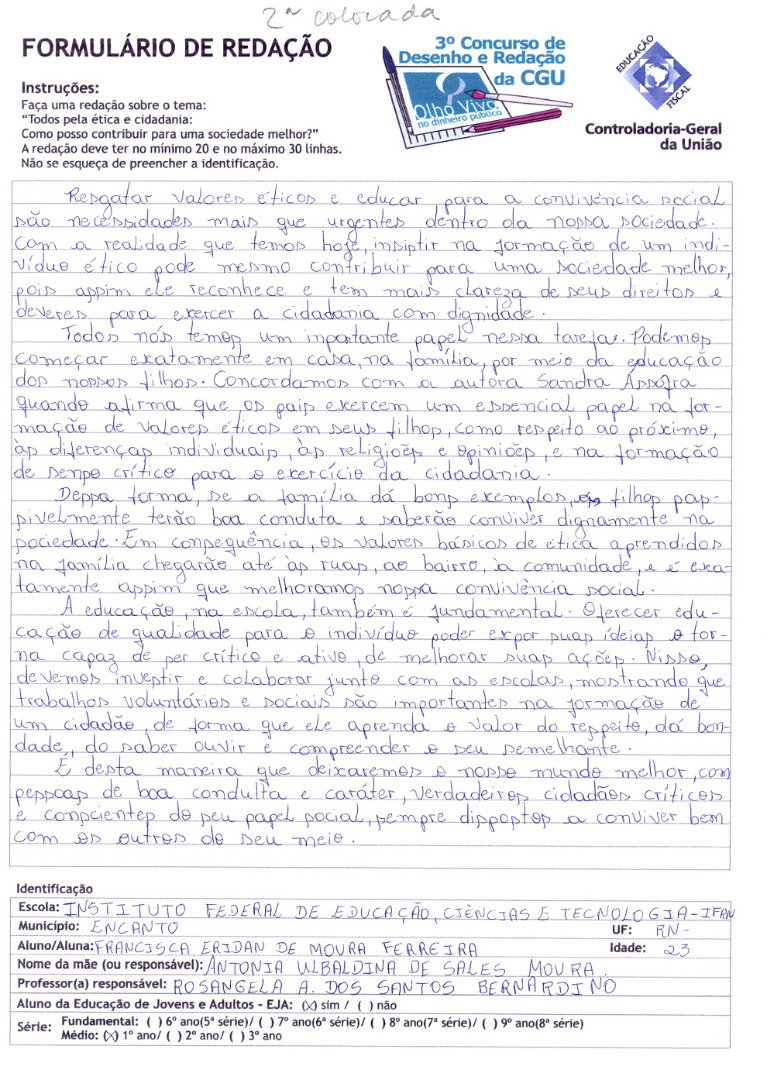 2ª colocada
FORMULÁRIO DE REDAÇÃO
3º Concurso de
Desenho e Redação
da CGU
Olho Vivo
no dinheiro público
EDUCAÇÃO
FISCAL
Controladoria-Geral
da União
Instruções:
Faça uma redação sobre o tema:
“Todos pela ética e cidadania:
Como posso contribuir para uma sociedade melhor?”
A redação deve ter no mínimo 20 e no máximo 30 linhas.
Não se esqueça de preencher a identificação.
Resgatar valores éticos e educar para a convivência social
são necessidades mais que urgentes dentro da nossa sociedade.
Com a realidade que temos hoje, insistir na formação de um indi-
víduo ético pode mesmo contribuir para uma sociedade melhor,
pois assim ele reconhece e tem mais clareza de seus direitos e
deveres para exercer a cidadania com dignidade.
Todos nós temos um inportante papel nessa tarefas. Podemos
começar exatamente em casa, na família, por meio da educação
dos nossos filhos. Concordamos com a autora Sandra Assofra
quando afirma que os pais exercem um essencial papel na for-
mação de valores éticos em seus filhos, como respeito ao próximo,
às diferenças individuais, às religiões e opiniões, e na formação
de senso crítico para o exercício da cidadania.
Dessa forma, se a família dá bons exemplos, os filhos pas-
sivelmente terão boa conduta e saberão conviver dignamente na
sociedade. Em consequência, os valores básicos de ética aprendidos
na família chegarão até às ruas, ao bairro, à comunidade, e é exa-
tamente assim que melhoramos nossa convivência social.
A educação, na escola, também é fundamental. Oferecer edu-
cação de qualidade para o indivíduo poder expor suas ideias o tor-
na capaz de ser crítico e ativo, de melhorar suas ações. Nisso,
devemos investir e colaborar junto com as escolas, mostrando que
trabalhos voluntários e sociais são importantes na formação de
um cidadão, de forma que ele aprenda o valor do respeito, dá bon-
dade, do saber ouvir e compreender o seu semelhante.
É desta maneira que deixaremos o nosso mundo melhor, com
pessoas de boa condulta e caráter, verdadeiros cidadãos críticos
e conscientes do seu papel social, sempre dispostos a conviver bem
com os outros do seu meio.
Identificação
Escola: INSTITUTO FEDERAL DE EDUCAÇÃO, CIÊNCIAS E TECNOLOGIA-IFRN
Município: ENCANTO UF: RN-
Aluno/Aluna: FRANCISCA ERIDAN DE MOURA FERREIRA Idade: 23
Nome da mãe (ou responsável): ANTONIA ULBALDINA DE SALES MOURA.
Professor(a) responsável: ROSANGELA A. DOS SANTOS BERNARDINO
Aluno da Educação de Jovens e Adultos - EJA: (X) sim / ( ) não
Série: Fundamental: ( ) 6º ano(5ª série)/ ( ) 7º ano(6ª série)/ ( ) 8º ano(7ª série)/ ( ) 9º ano(8ª série)
Médio: (X) 1º ano/ ( ) 2º ano/ ( ) 3º ano